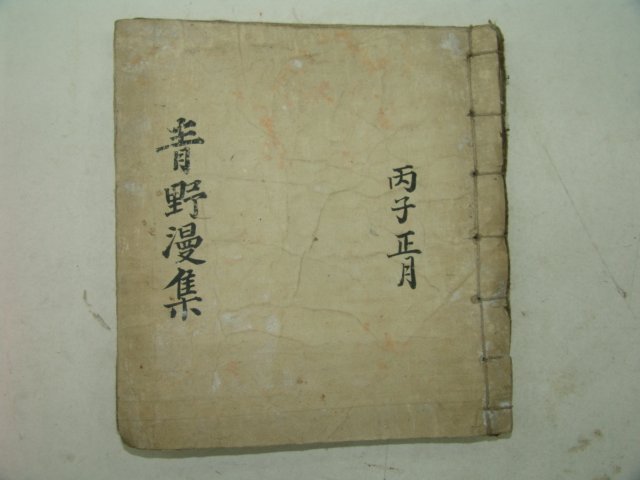 丙子正月
青野漫集